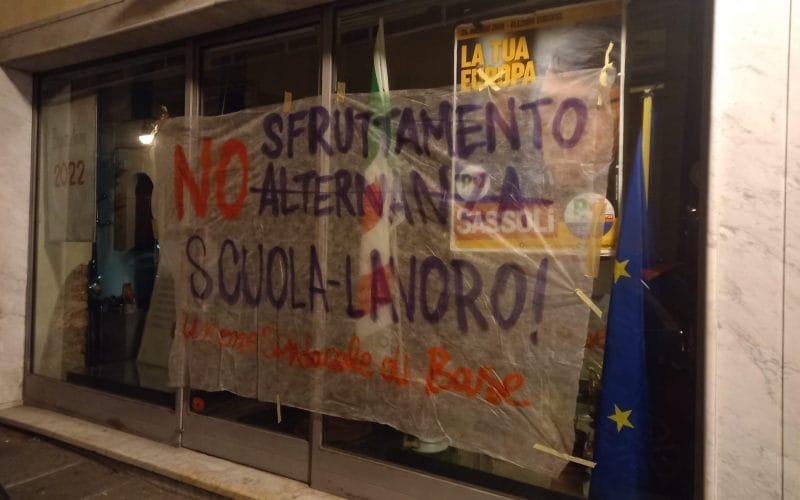 NO SFRUTTAMENTO
ALTERNANZA
SCUOLA-LAVORO!
Unione Sindacale di Base
LA TUA
EUROPA
SASSOLI
2022